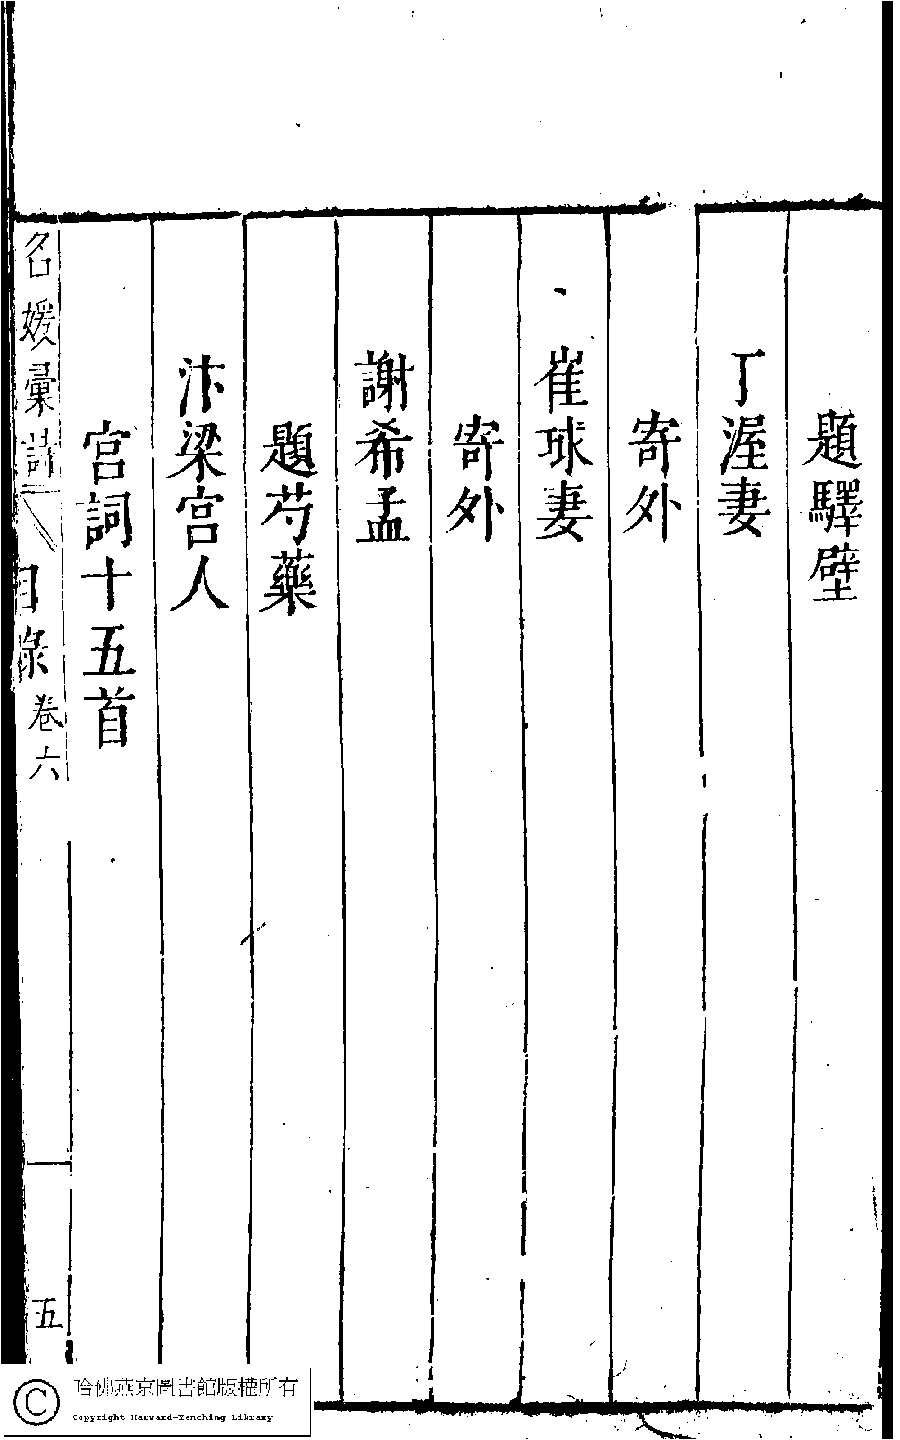 題驛壁
丁渥妻
寄外
崔球妻
寄外
謝希孟
題芍藥
汴梁宫人
宫詞十五首
名媛彙詩
目錄
卷六
五
哈佛燕京圖書館版權所有
Copyright Harvard-Yenching Library